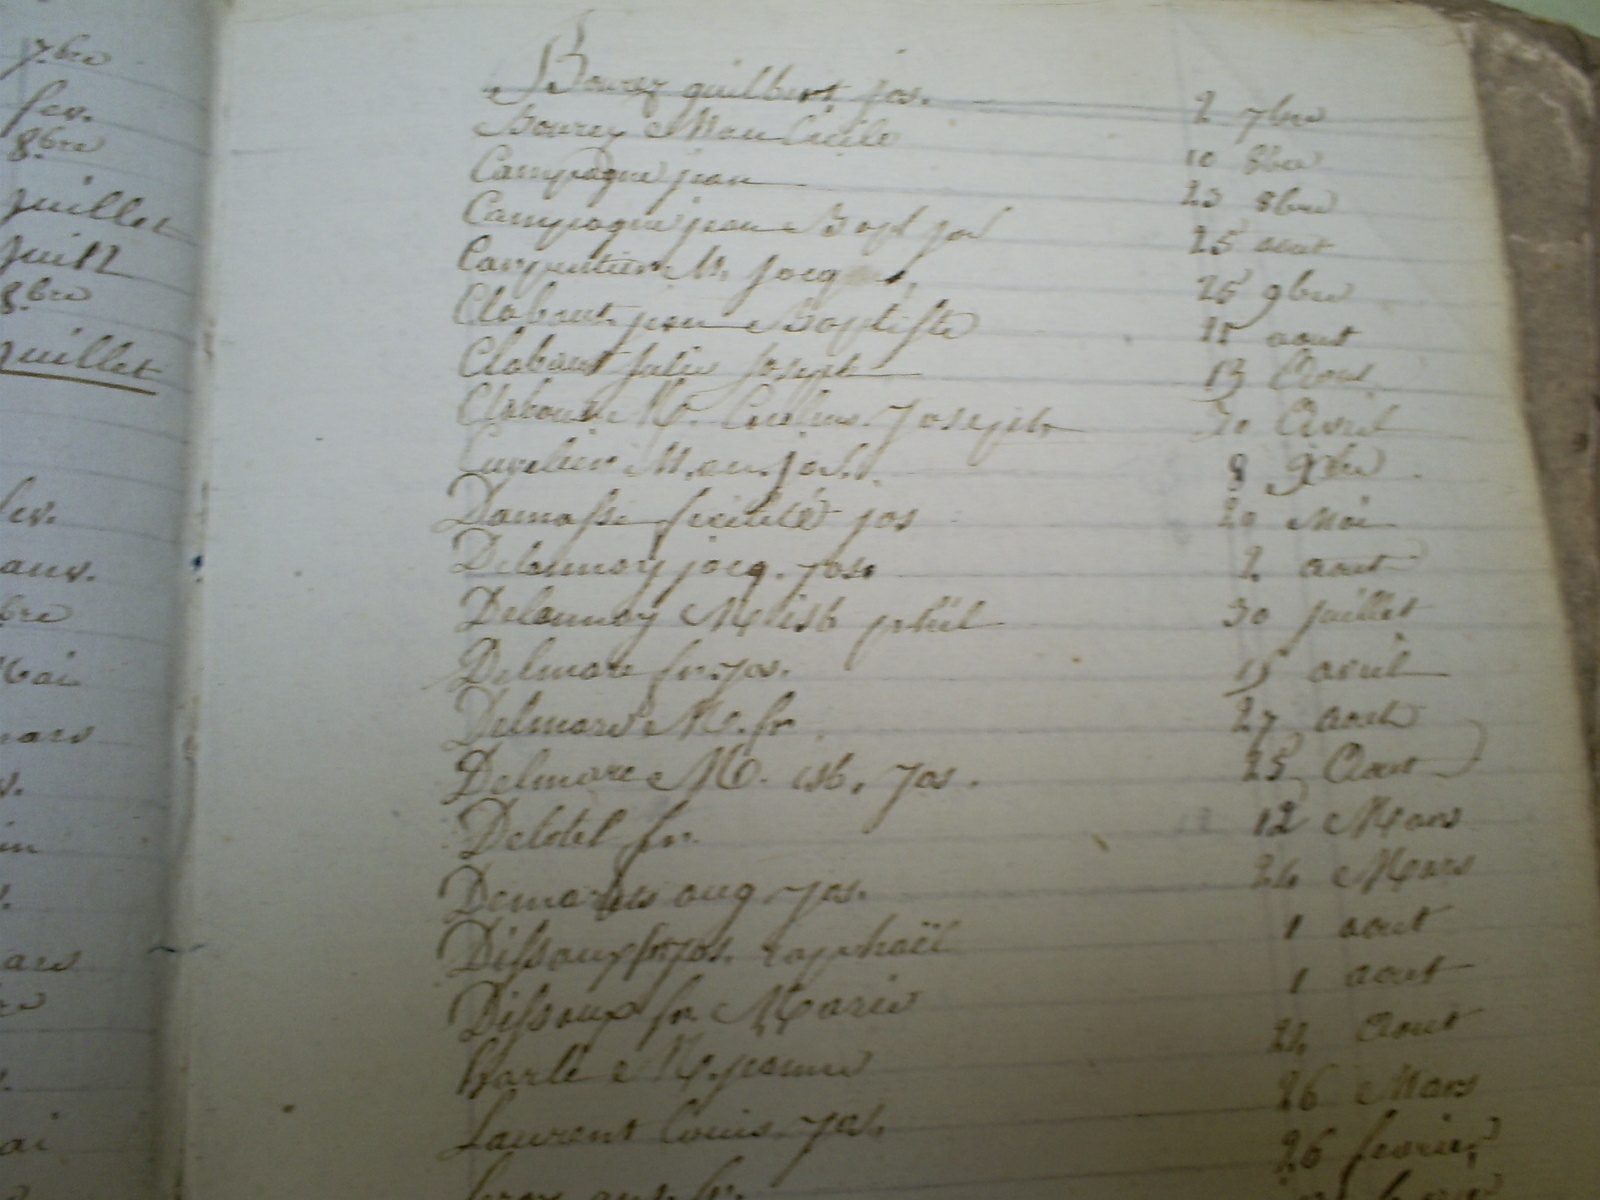 7.bre
fev.
8bre
juillet
juill
8.bre
juillet
fev.
anv.
bre
Mai
mars
v.
in
ars
ai
Bourez guilbert jos. 2 7bre
Bourez Marie Cécile 10 8bre
Campagne jean 23 8bre
Campagne jean Bapt jos 25 aout
Carpentier M. jacq 25 9bre
Clabaut jean Baptiste 15 aout
Clabaut Jules Joseph 13 Aout
Clabaut M. Joseph 30 Avril
Cuvelier M. jos. 8 9bre
Damasse félicité jos 20 Mai
Delannoy jacq. jos. 2 aout
Delannoy M isb phil 30 juillet
Delmare fr. jos. 15 avril
Delmare M. fr 27 aout
Delmare M. isb. jos. 25 Aout
Delotel fr. 12 Mars
Demarles aug. jos. 26 Mars
Dissaux fr jos. raphaël 1 aout
Dissaux fr Marie 1 aout
Harle M. jeanne 21 Aout
Laurent Louis jos. 26 Mars
fr. 26 fevrier